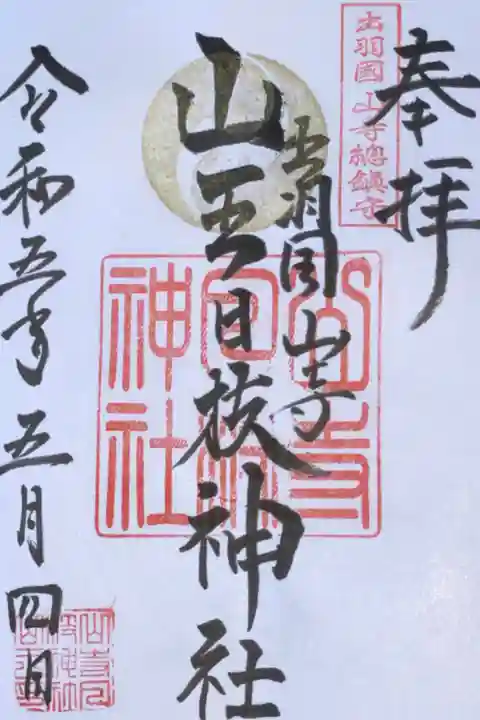 奉拝
出羽國山寺總鎮守
出羽国山寺
山王日枝神社
山寺日枝神社
令和五年五月四日